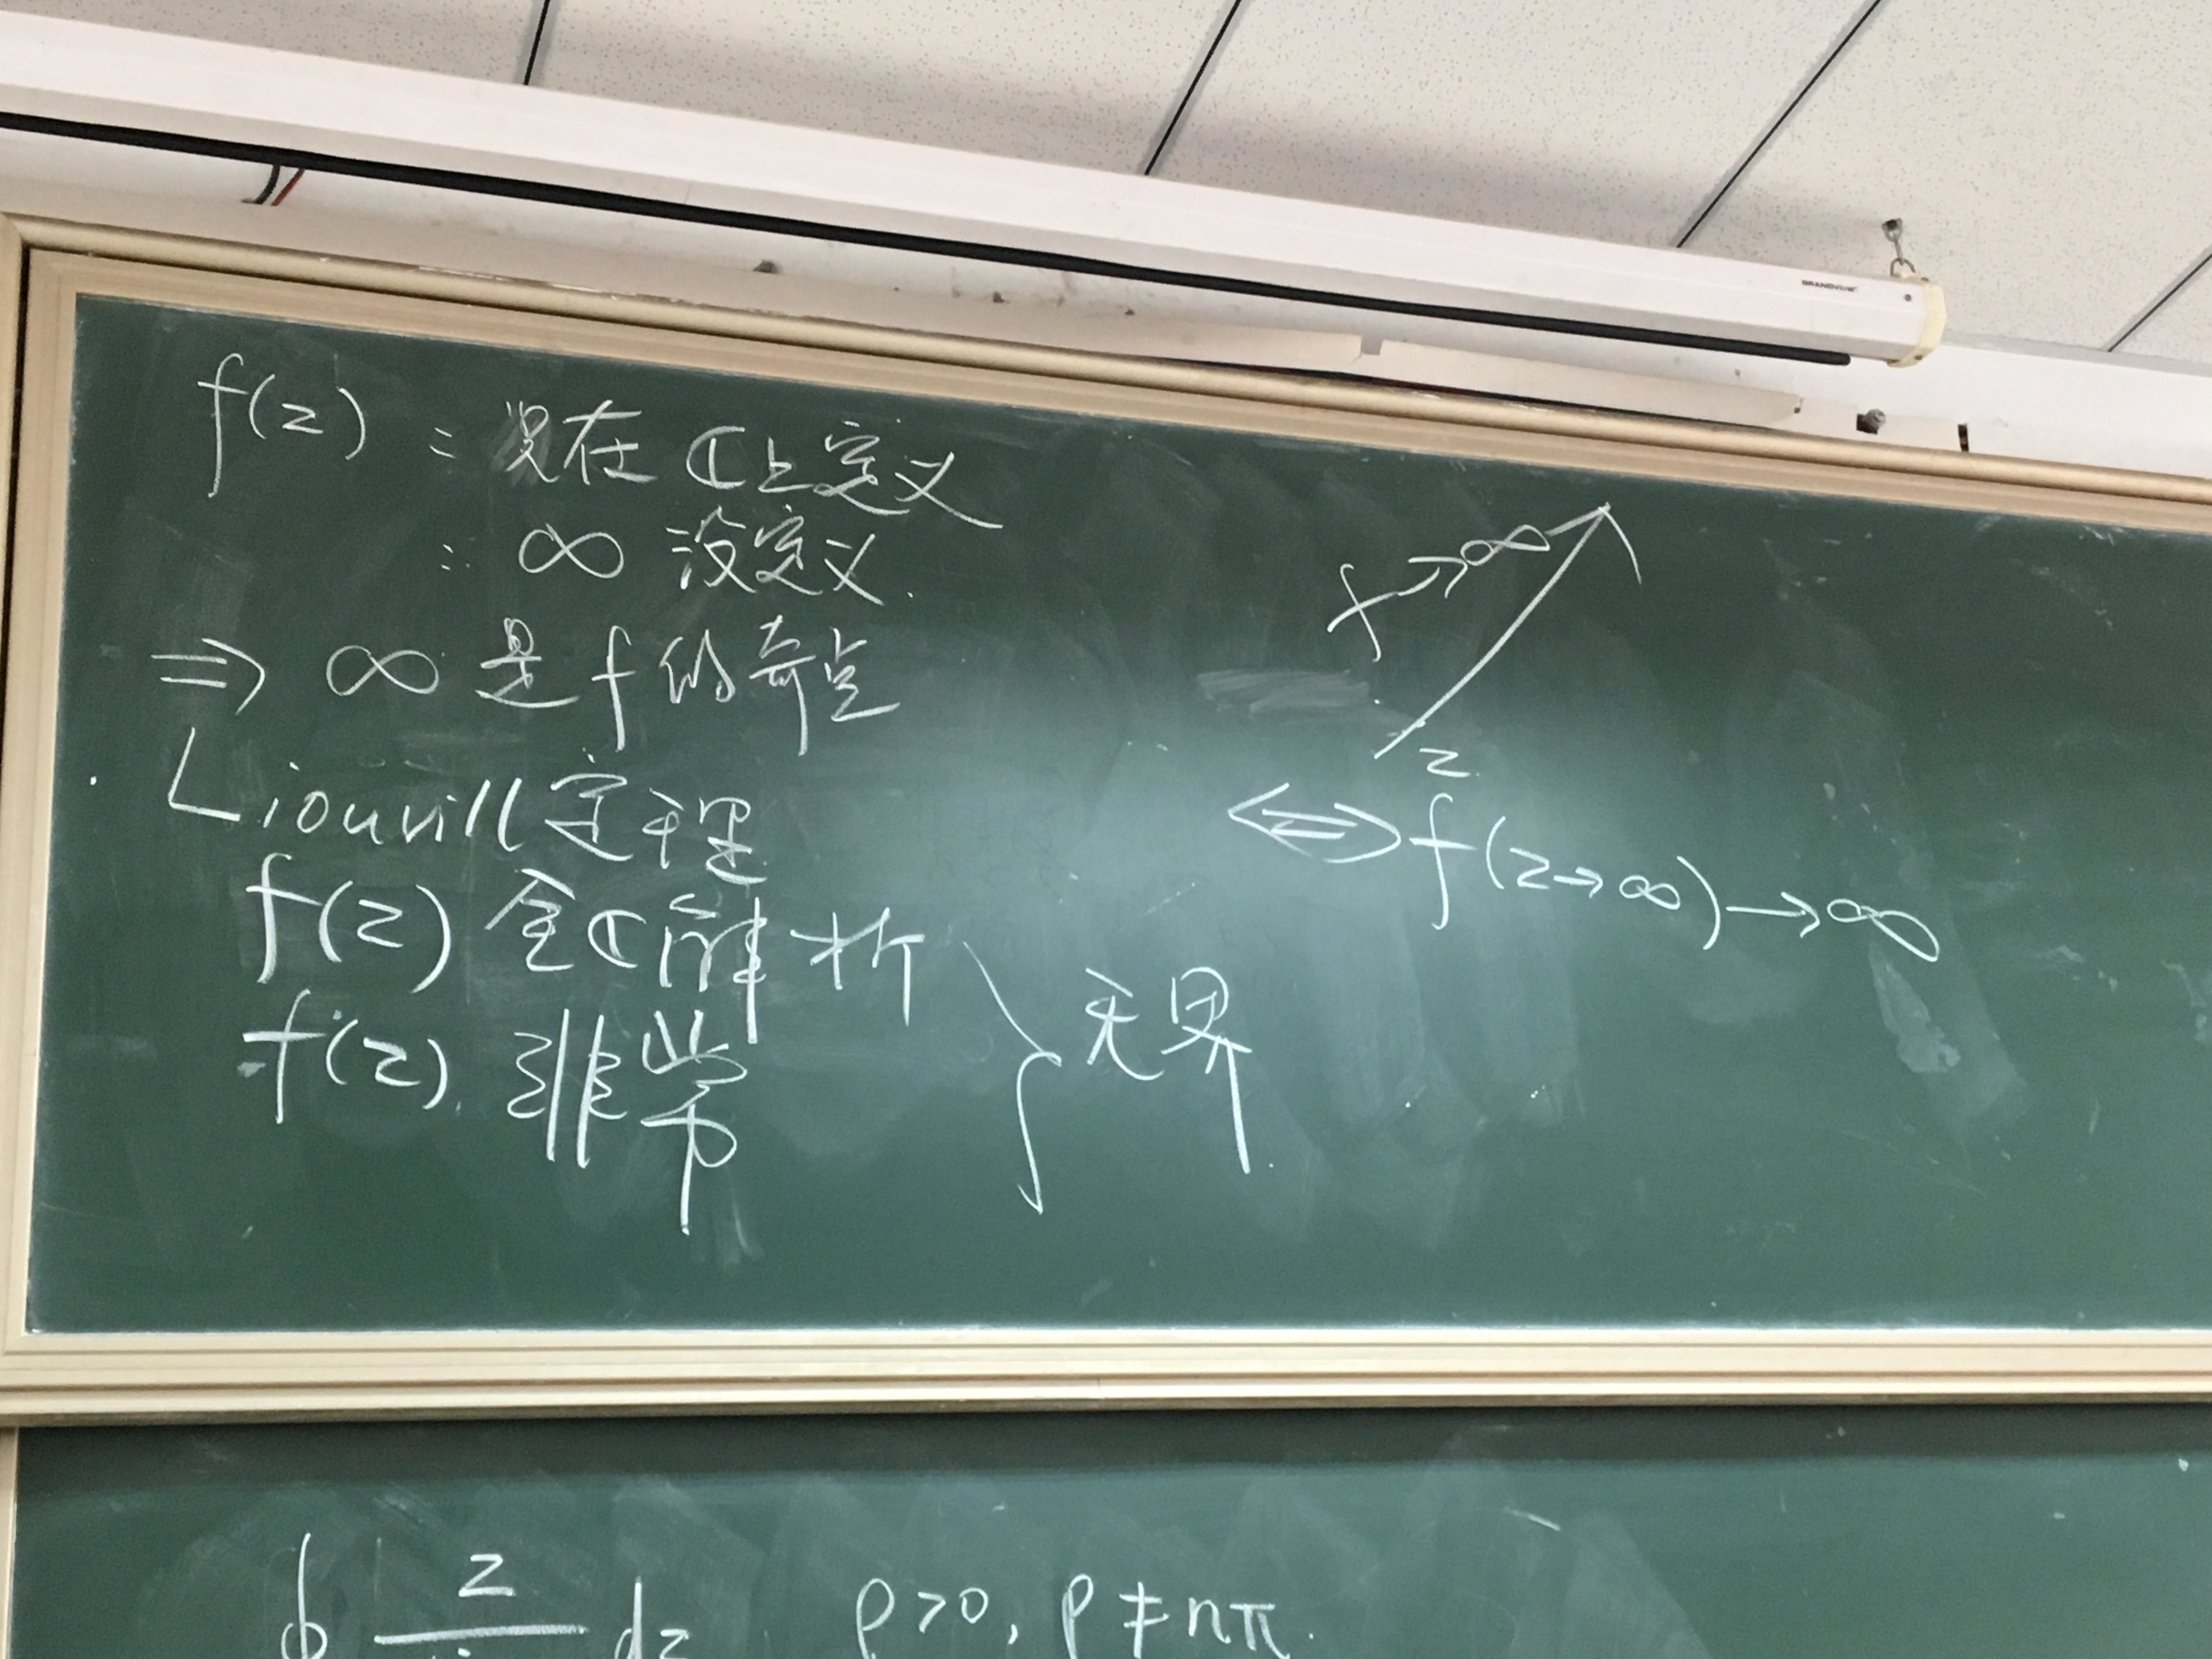 f(z) : 只在ℂ上定义
: ∞ 没定义.
⇒ ∞ 是 f 的奇点
Liouvill定理
f(z) 全ℂ解析
f(z) 非常
} 无界
f → ∞
z
⇔ f(z→∞)→∞
∮ z dz ρ>0, ρ≠nπ.
GRANDVIEW